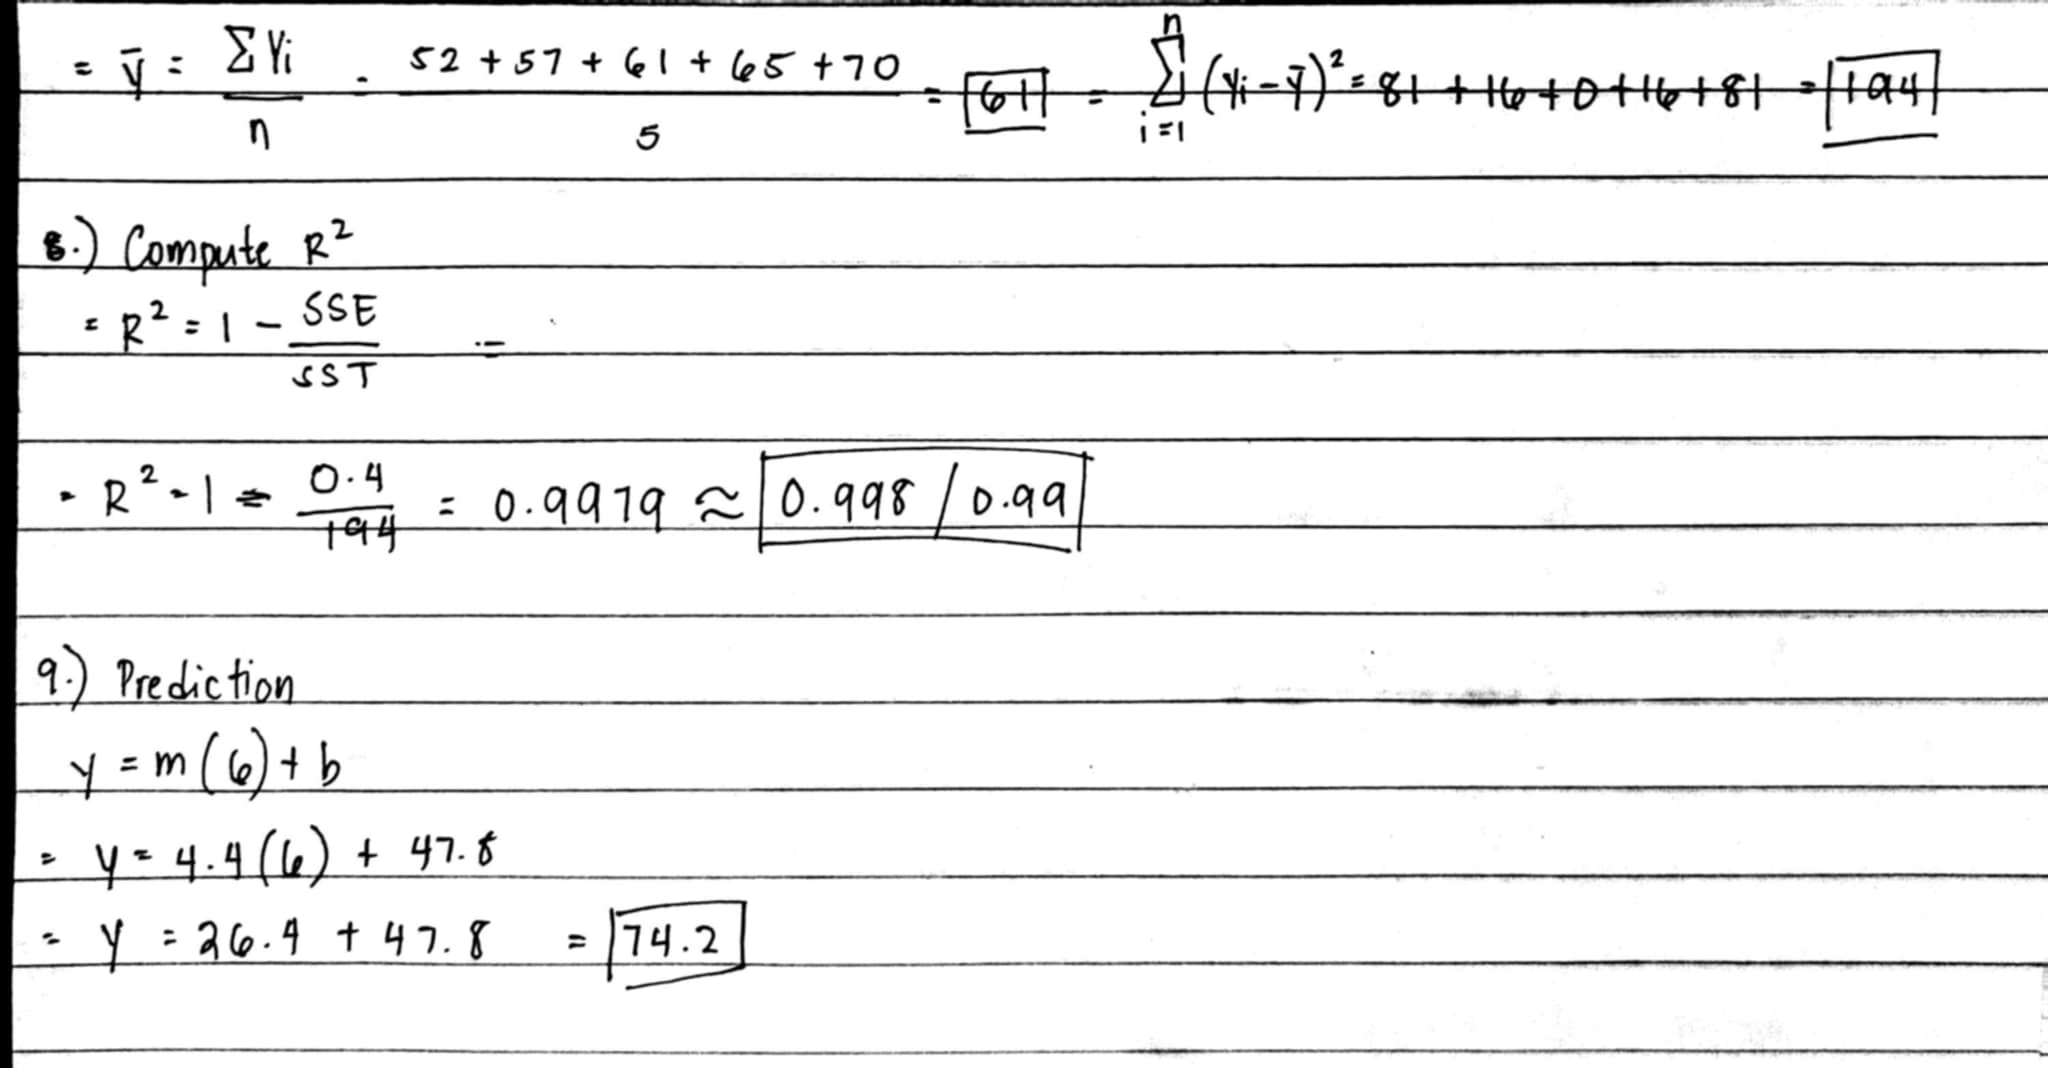 = ȳ = ΣYi / n = 52 + 57 + 61 + 65 + 70 / 5 = 61 = Σ i=1 n (Yi - ȳ)² = 81 + 16 + 0 + 16 + 81 = 194
8.) Compute R²
= R² = 1 - SSE / SST =
= R² = 1 - 0.4 / 194 = 0.9979 ≈ 0.998 / 0.99
9.) Prediction
y = m(6) + b
= y = 4.4(6) + 47.8
= y = 26.4 + 47.8 = 74.2